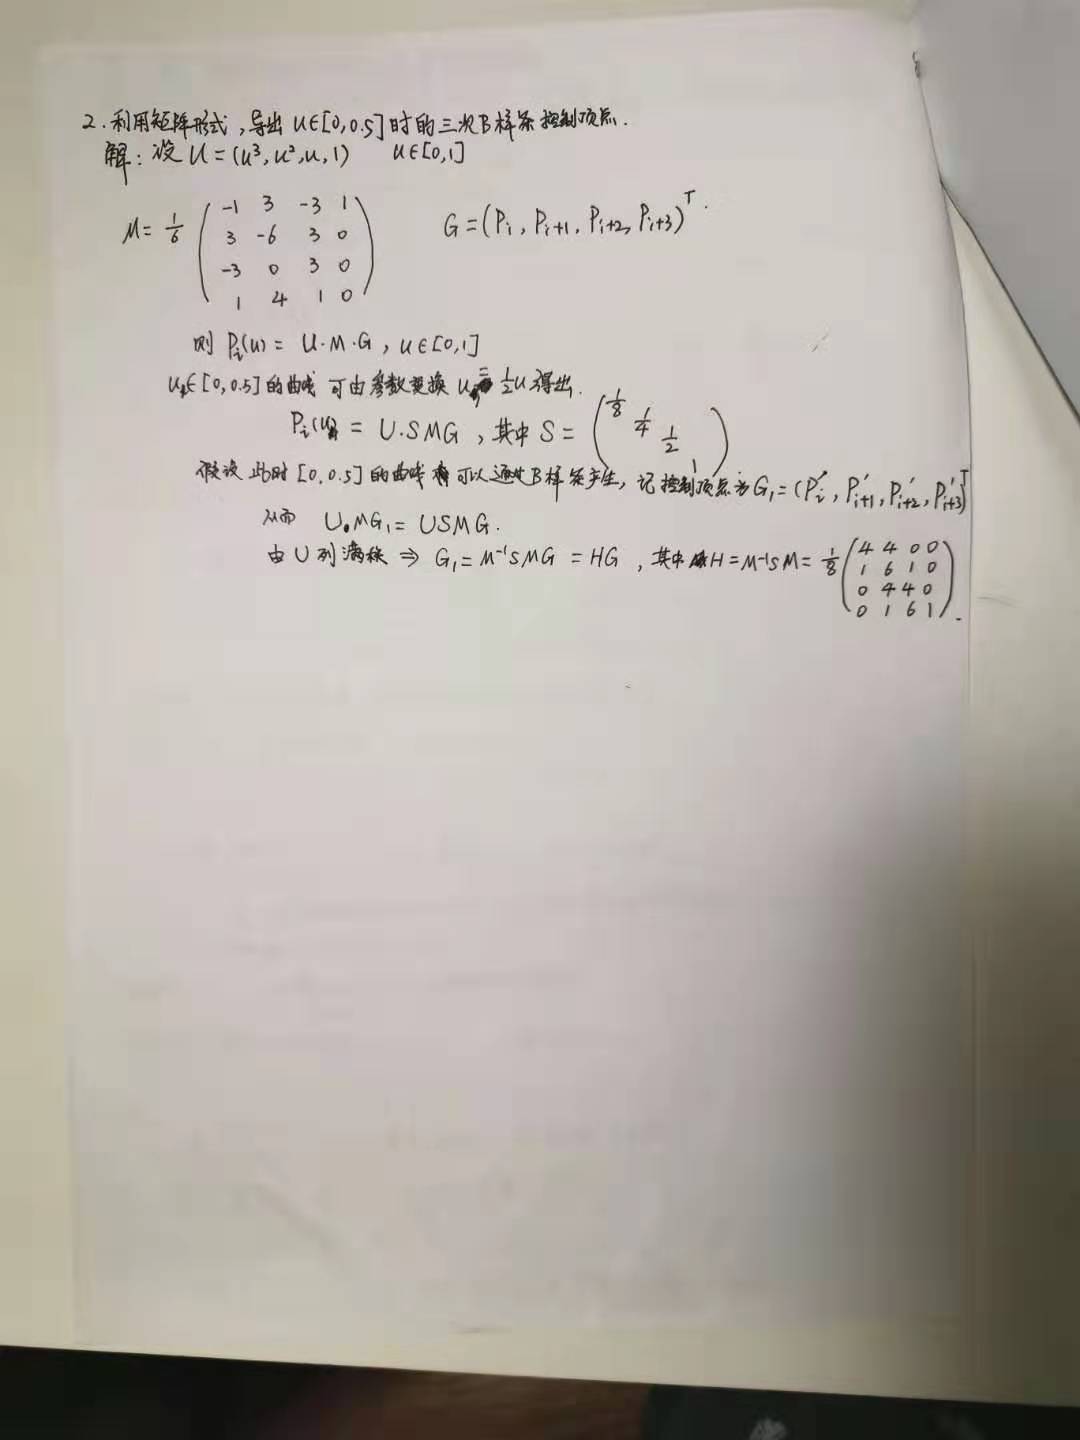 2. 利用矩阵形式, 导出 u∈[0,0.5] 时的三次B样条控制顶点.
解: 设 U = (u³, u², u, 1) u∈[0,1]
M = 1/6 ( -1 3 -3 1 G = (Pi, Pi+1, Pi+2, Pi+3)ᵀ.
3 -6 3 0
-3 0 3 0
1 4 1 0 )
则 Pi(u) = U·M·G, u∈[0,1]
u∈[0,0.5] 的曲线 可由参数变换 = 1/2 u 得出.
Pi(u) = U·SMG, 其中 S = ( 1/8 1/4 1/2 1 )
假设此时 [0,0.5] 的曲线 可以通过B样条产生, 记控制顶点为 G₁ = (Pi', Pi+1', Pi+2', Pi+3')ᵀ
从而 U·MG₁ = USMG.
由 U 列满秩 ⇒ G₁ = M⁻¹SMG = HG, 其中 H = M⁻¹SM = 1/8 ( 4 4 0 0
1 6 1 0
0 4 4 0
0 1 6 1 ).